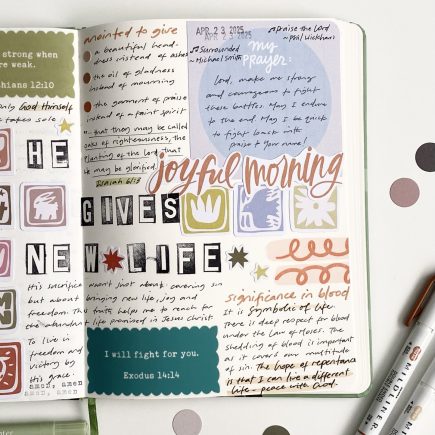 strong when
re weak.
thians 12:10
only God Himself
takes sole
HE
NEW
His sacrifice
but about
freedom. Th
the abundant
To live in
freedom and
victory by
His grace.
amen, amen
amen, amen
anointed to give
a beautiful head-
dress instead of ashes
the oil of gladness
instead of mourning
the garment of praise
instead of a faint spirit
that they may be called
oaks of righteousness, the
planting of the Lord, that
He may be glorified.
Isaiah 61:3
APR 23 2025
Surrounded
~Michael Smith
praise the Lord
~Phil Wickham
my
prayer:
Lord, make me strong
and courageous to fight
these battles. May I endure
to the end. May I be quick
to fight back with
praise to Your name!
joyful morning
GIVES
LIFE
wasn't just about covering sin
bringing new life, joy and
truth helps me to reach for
life promised in Jesus Christ
I will fight for you.
Exodus 14:14
significance in blood
It is symbolic of life.
There is deep respect for blood
under the Law of Moses. The
shedding of blood is important
as it covers our multitude
of sin. The hope of repentance
is that I can live a different
life - peace with God.
MILDLINER